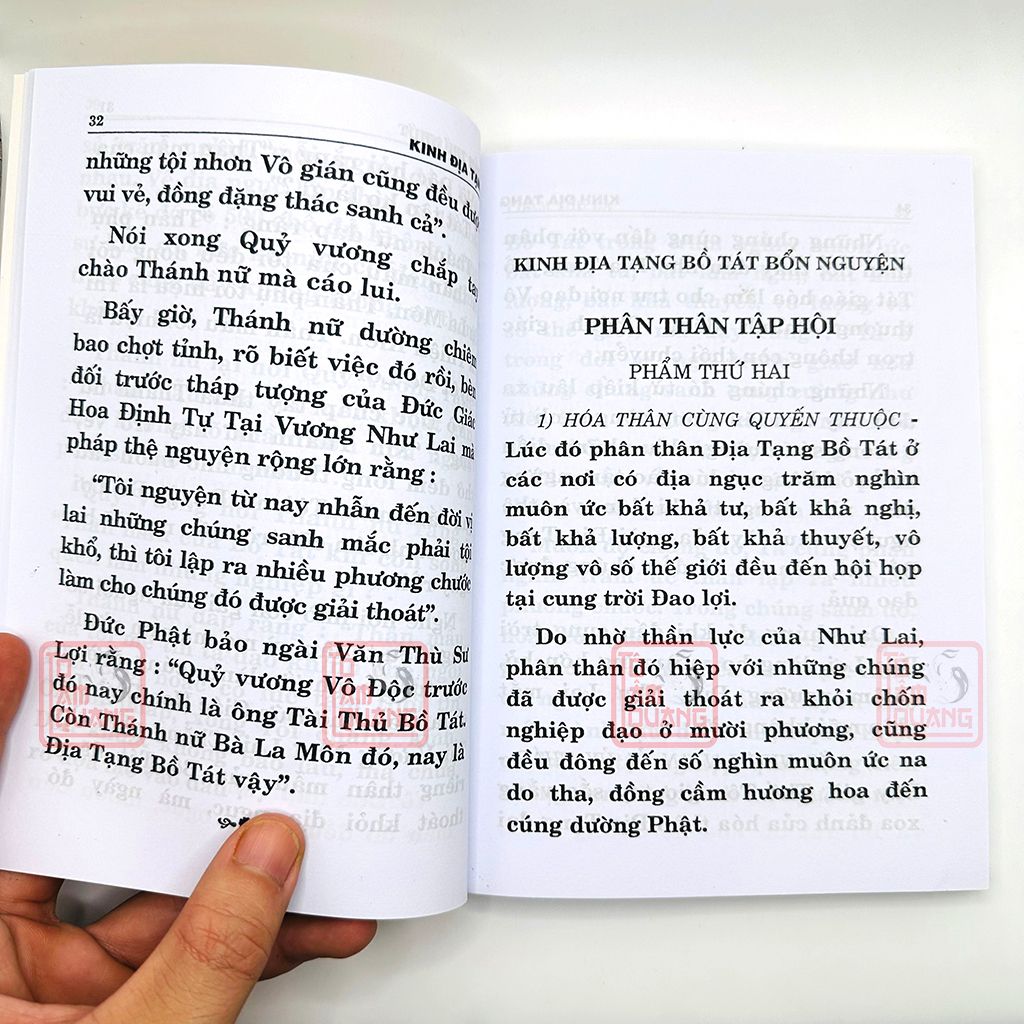 32
KINH ĐỊA TẠ
những tội nhơn Vô gián cũng đều được
vui vẻ, đồng đặng thác sanh cả”.
Nói xong Quỷ vương chắp tay
chào Thánh nữ mà cáo lui.
Bấy giờ, Thánh nữ dường chiêm
bao chợt tỉnh, rõ biết việc đó rồi, bèn
đối trước tháp tượng của Đức Giác
Hoa Định Tự Tại Vương Như Lai mà
pháp thệ nguyện rộng lớn rằng :
“Tôi nguyện từ nay nhẫn đến đời vị
lai những chúng sanh mắc phải tội
khổ, thì tôi lập ra nhiều phương chước
làm cho chúng đó được giải thoát”.
Đức Phật bảo ngài Văn Thù Sư
Lợi rằng : “Quỷ vương Vô Độc trước
đó nay chính là ông Tài Thủ Bồ Tát.
Còn Thánh nữ Bà La Môn đó, nay là
Địa Tạng Bồ Tát vậy”.
KINH ĐỊA TẠNG BỒ TÁT BỔN NGUYỆN
PHÂN THÂN TẬP HỘI
PHẨM THỨ HAI
1) HÓA THÂN CÙNG QUYẾN THUỘC -
Lúc đó phân thân Địa Tạng Bồ Tát ở
các nơi có địa ngục trăm nghìn
muôn ức bất khả tư, bất khả nghị,
bất khả lượng, bất khả thuyết, vô
lượng vô số thế giới đều đến hội họp
tại cung trời Đao lợi.
Do nhờ thần lực của Như Lai,
phân thân đó hiệp với những chúng
đã được giải thoát ra khỏi chốn
nghiệp đạo ở mười phương, cũng
đều đông đến số nghìn muôn ức na
do tha, đồng cầm hương hoa đến
cúng dường Phật.
TỪ TÂM QUANG
TỪ TÂM QUANG
TỪ TÂM QUANG
TỪ TÂM QUANG